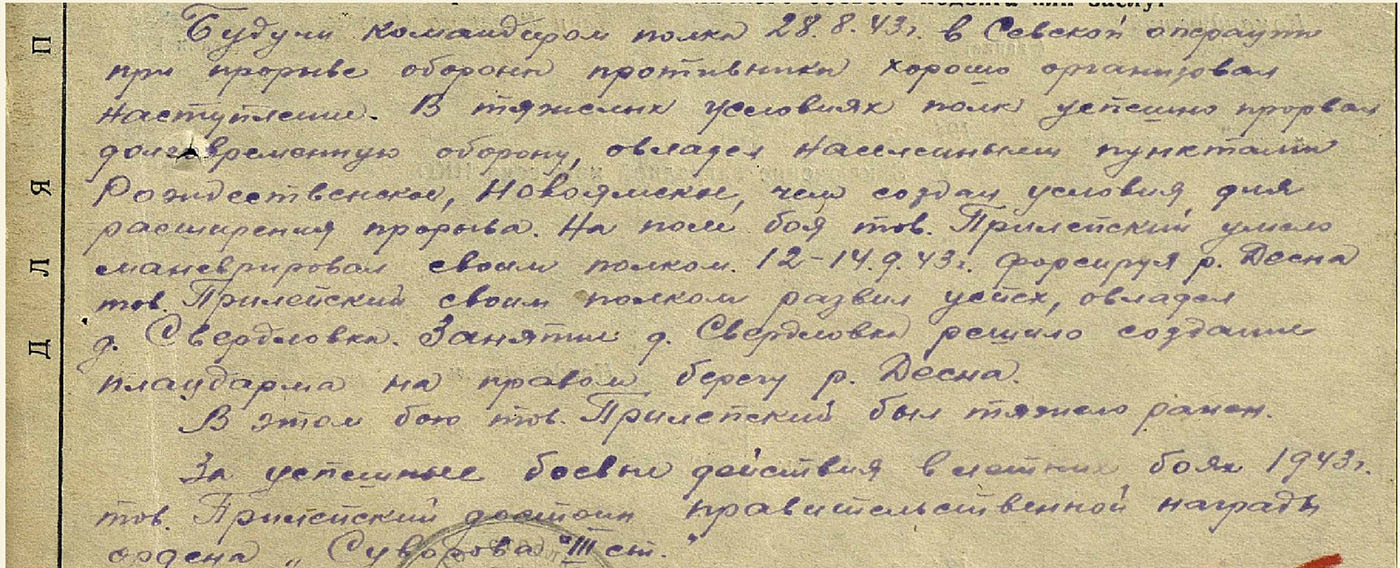 боевого подвига или заслуг
Будучи командиром полка 28.8.43г. в Севской операции
при прорыве обороны противника хорошо организовал
наступление. В тяжелых условиях полк успешно прорвал
долговременную оборону, овладел населенными пунктами
Рождественское, Новоямское, чем создал условия для
расширения прорыва. На поле боя тов. Прилепский умело
сманеврировал своим полком. 12-14.9.43г. форсируя р. Десна
тов. Прилепский своим полком развил успех, овладел
д. Свердловка. Занятие д. Свердловка решило создание
плацдарма на правом берегу р. Десна.
В этом бою тов. Прилепский был тяжело ранен.
За успешные боевые действия в летних боях 1943г.
тов. Прилепский достоин правительственной награды
ордена „Суворова" III ст."
Д Л Я П